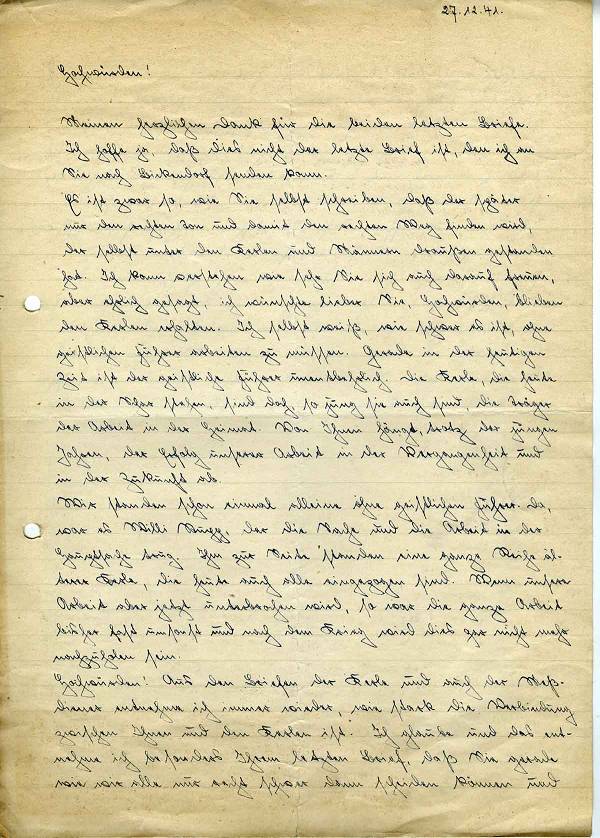 27.12.41.
Hochwürden!
Meinen herzlichen Dank für die beiden letzten Briefe.
Ich hoffe ja, daß dies nicht der letzte Brief ist, den ich an
Sie nach Birkendorf senden kann.
Es ist zwar so, wie Sie selbst schreiben, daß der später
nur den rechten Ton und damit den rechten Weg finden wird,
der selbst unter den Kerlen und Männern draußen gestanden
hat. Ich kann verstehen wie sehr Sie sich auch darauf freuen,
aber ehrlich gesagt, ich wünschte lieber Sie, Hochwürden, blieben
den Kerlen erhalten. Ich selbst weiß, wie schwer es ist, ohne
geistlichen Führer arbeiten zu müssen. Gerade in der heutigen
Zeit ist der geistliche Führer unentbehrlich. Die Kerle, die heute
in der Schar stehen, sind doch, so jung sie auch sind, die Träger
der Arbeit in der Heimat. Von Ihnen hängt, trotz der jungen
Jahren, der Erfolg unserer Arbeit in der Vergangenheit und
in der Zukunft ab.
Wir standen schon einmal alleine ohne geistlichen Führer. Da,
war es Willi der die Sache und die Arbeit in der
Hauptsache trug. Ihm zur Seite standen eine ganze Reihe äl-
terer Kerle, die heute auch alle eingezogen sind. Wenn unsere
Arbeit aber jetzt unterbrochen wird, so war die ganze Arbeit
bisher fast umsonst und nach dem Krieg wird dies gar nicht mehr
nachzuholen sein.
Hochwürden! Aus den Briefen der Kerle und auch der Meß-
diener entnehme ich immer wieder, wie stark die Verbindung
zwischen Ihnen und den Kerlen ist. Ich glaube und das ent-
nehme ich besonders Ihrem letzten Brief, daß Sie gerade
wie wir alle nur recht schwer dann scheiden können und